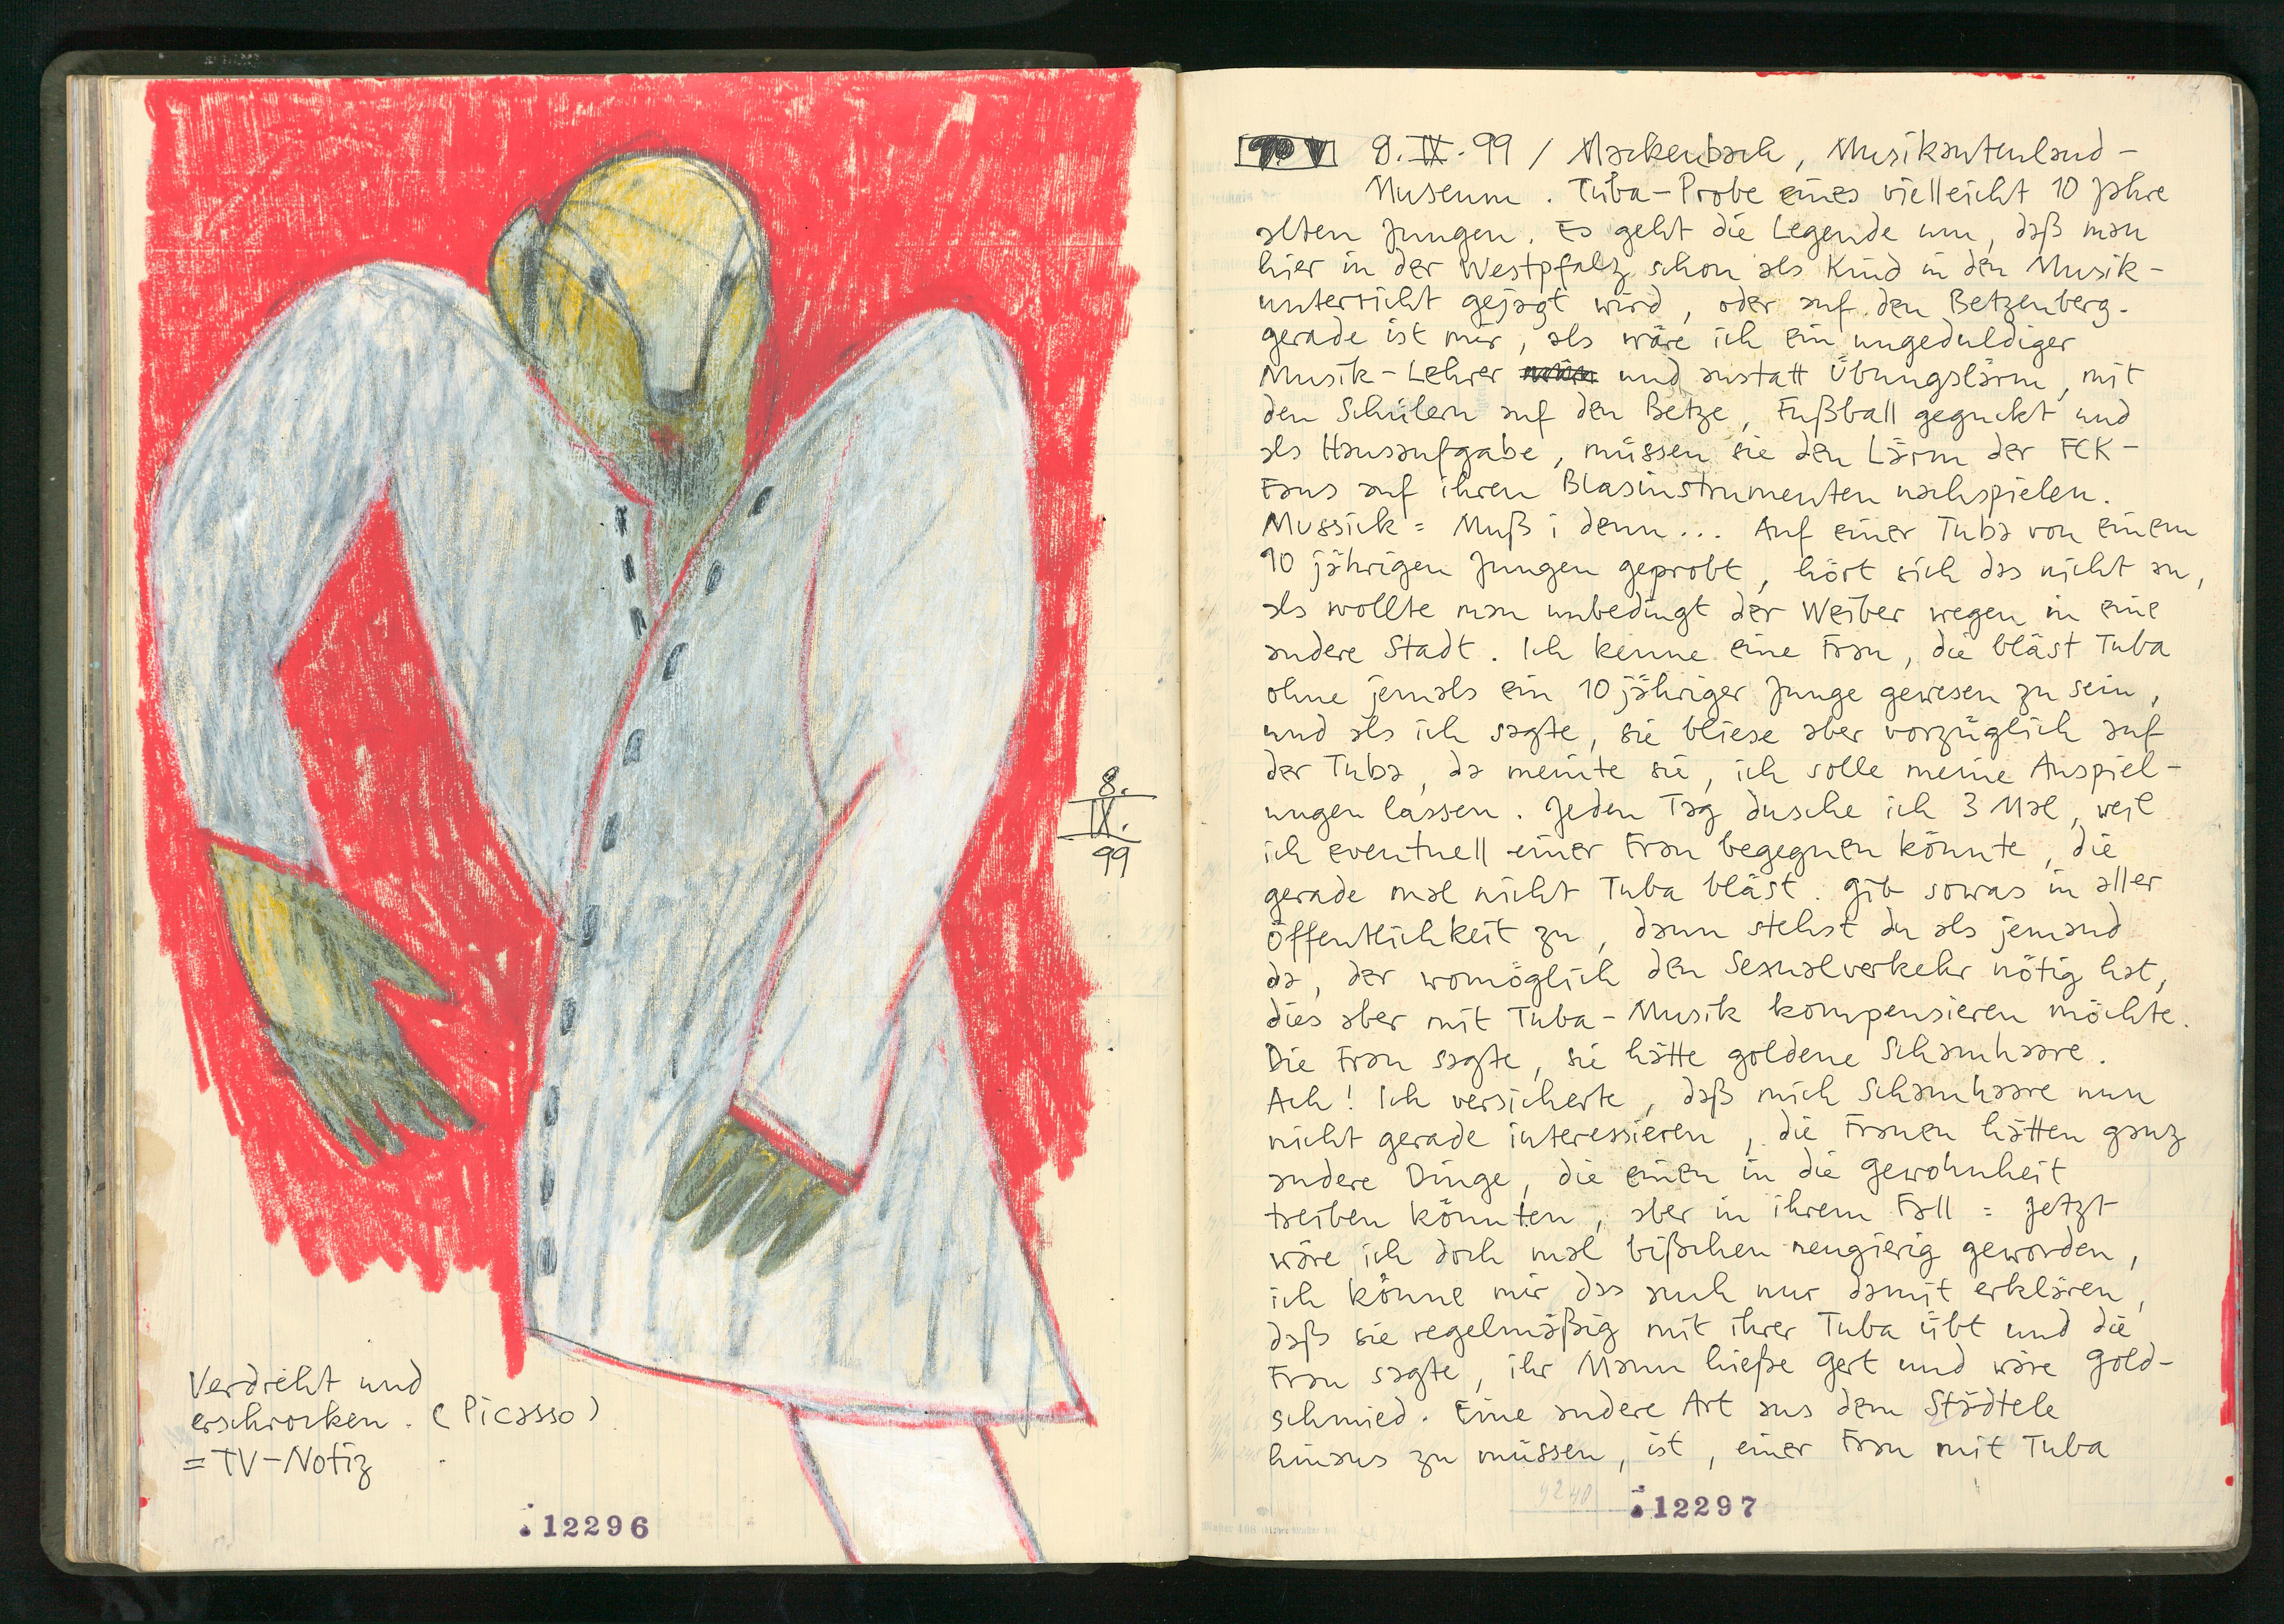 8.
IX.
99
Verdreht und
erschrocken. (Picasso)
= TV-Notiz
12296
8. IX. 99 / Mackenbach, Musikantenland-
Museum. Tuba-Probe eines vielleicht 10 Jahre
alten Jungen. Es geht die Legende um, daß man
hier in der Westpfalz schon als Kind in den Musik-
unterricht gejagt wird, oder auf den Betzenberg.
gerade ist mir, als wäre ich ein ungeduldiger
Musik-Lehrer und anstatt Übungslärm, mit
den Schülern auf den Betze, Fußball geguckt und
als Hausaufgabe, müssen sie den Lärm der FCK-
Fans auf ihren Blasinstrumenten nachspielen.
Mussick = Muß i denn... Auf einer Tuba von einem
10 jährigen Jungen geprobt, hört sich das nicht an,
als wollte man unbedingt der Weiber wegen in eine
andere Stadt. Ich kenne eine Frau, die bläst Tuba
ohne jemals ein 10 jähriger Junge gewesen zu sein,
und als ich sagte, sie bliese aber vorzüglich auf
der Tuba, da meinte sie, ich solle meine Anspiel-
ungen lassen. Jeden Tag dusche ich 3 Mal, weil
ich eventuell einer Frau begegnen könnte, die
gerade mal nicht Tuba bläst. Gib sowas in aller
Öffentlichkeit zu, dann stehst du als jemand
da, der womöglich den Sexualverkehr nötig hat,
dies aber mit Tuba-Musik kompensieren möchte.
Die Frau sagte, sie hätte goldene Schamhaare.
Ach! Ich versicherte, daß mich Schamhaare nun
nicht gerade interessieren, die Frauen hätten ganz
andere Dinge, die einen in die Gewohnheit
treiben könnten, aber in ihrem Fall = Jetzt
wäre ich doch mal bißchen neugierig geworden,
ich könne mir das auch nur damit erklären,
daß sie regelmäßig mit ihrer Tuba übt und die
Frau sagte, ihr Mann hieße Gert und wäre Gold-
schmied. Eine andere Art aus dem Städtele
hinaus zu müssen, ist, einer Frau mit Tuba
12297